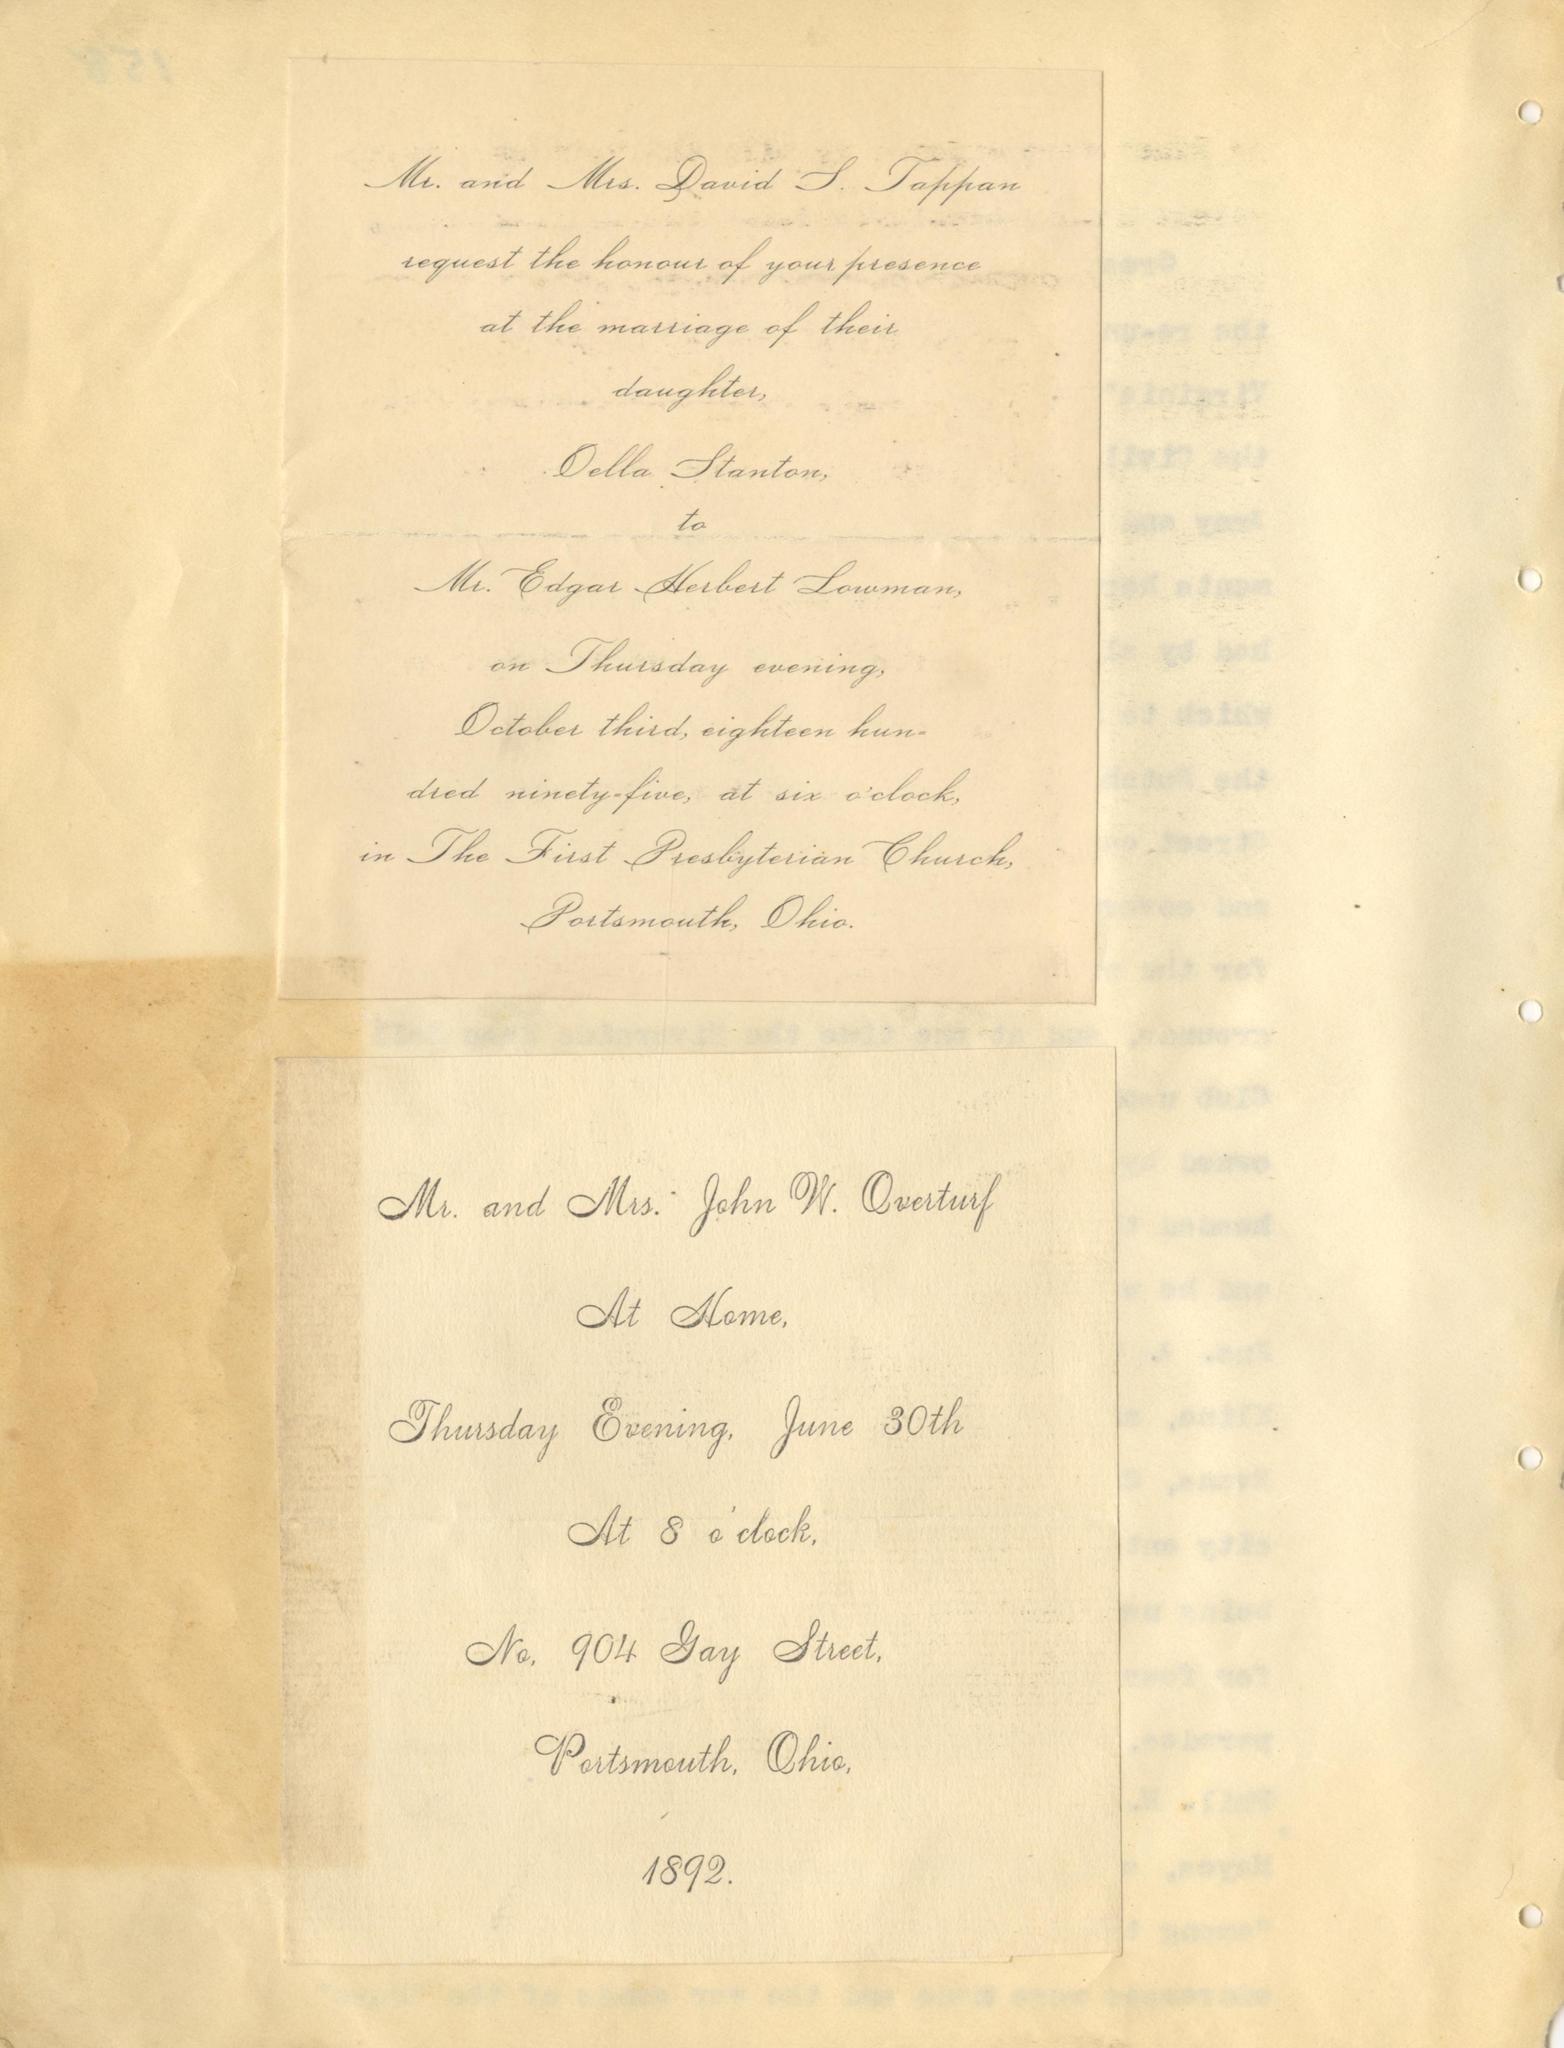 Mr. and Mrs. David S. Tappan
request the honour of your presence
at the marriage of their
daughter,
Oella Stanton,
to
Mr. Edgar Herbert Lowman,
on Thursday evening,
October third, eighteen hun-
dred ninety-five, at six o'clock,
in The First Presbyterian Church,
Portsmouth, Ohio.
Mr. and Mrs. John W. Overturf
At Home,
Thursday Evening, June 30th
At 8 o'clock,
No. 904 Gay Street,
Portsmouth, Ohio,
1892.